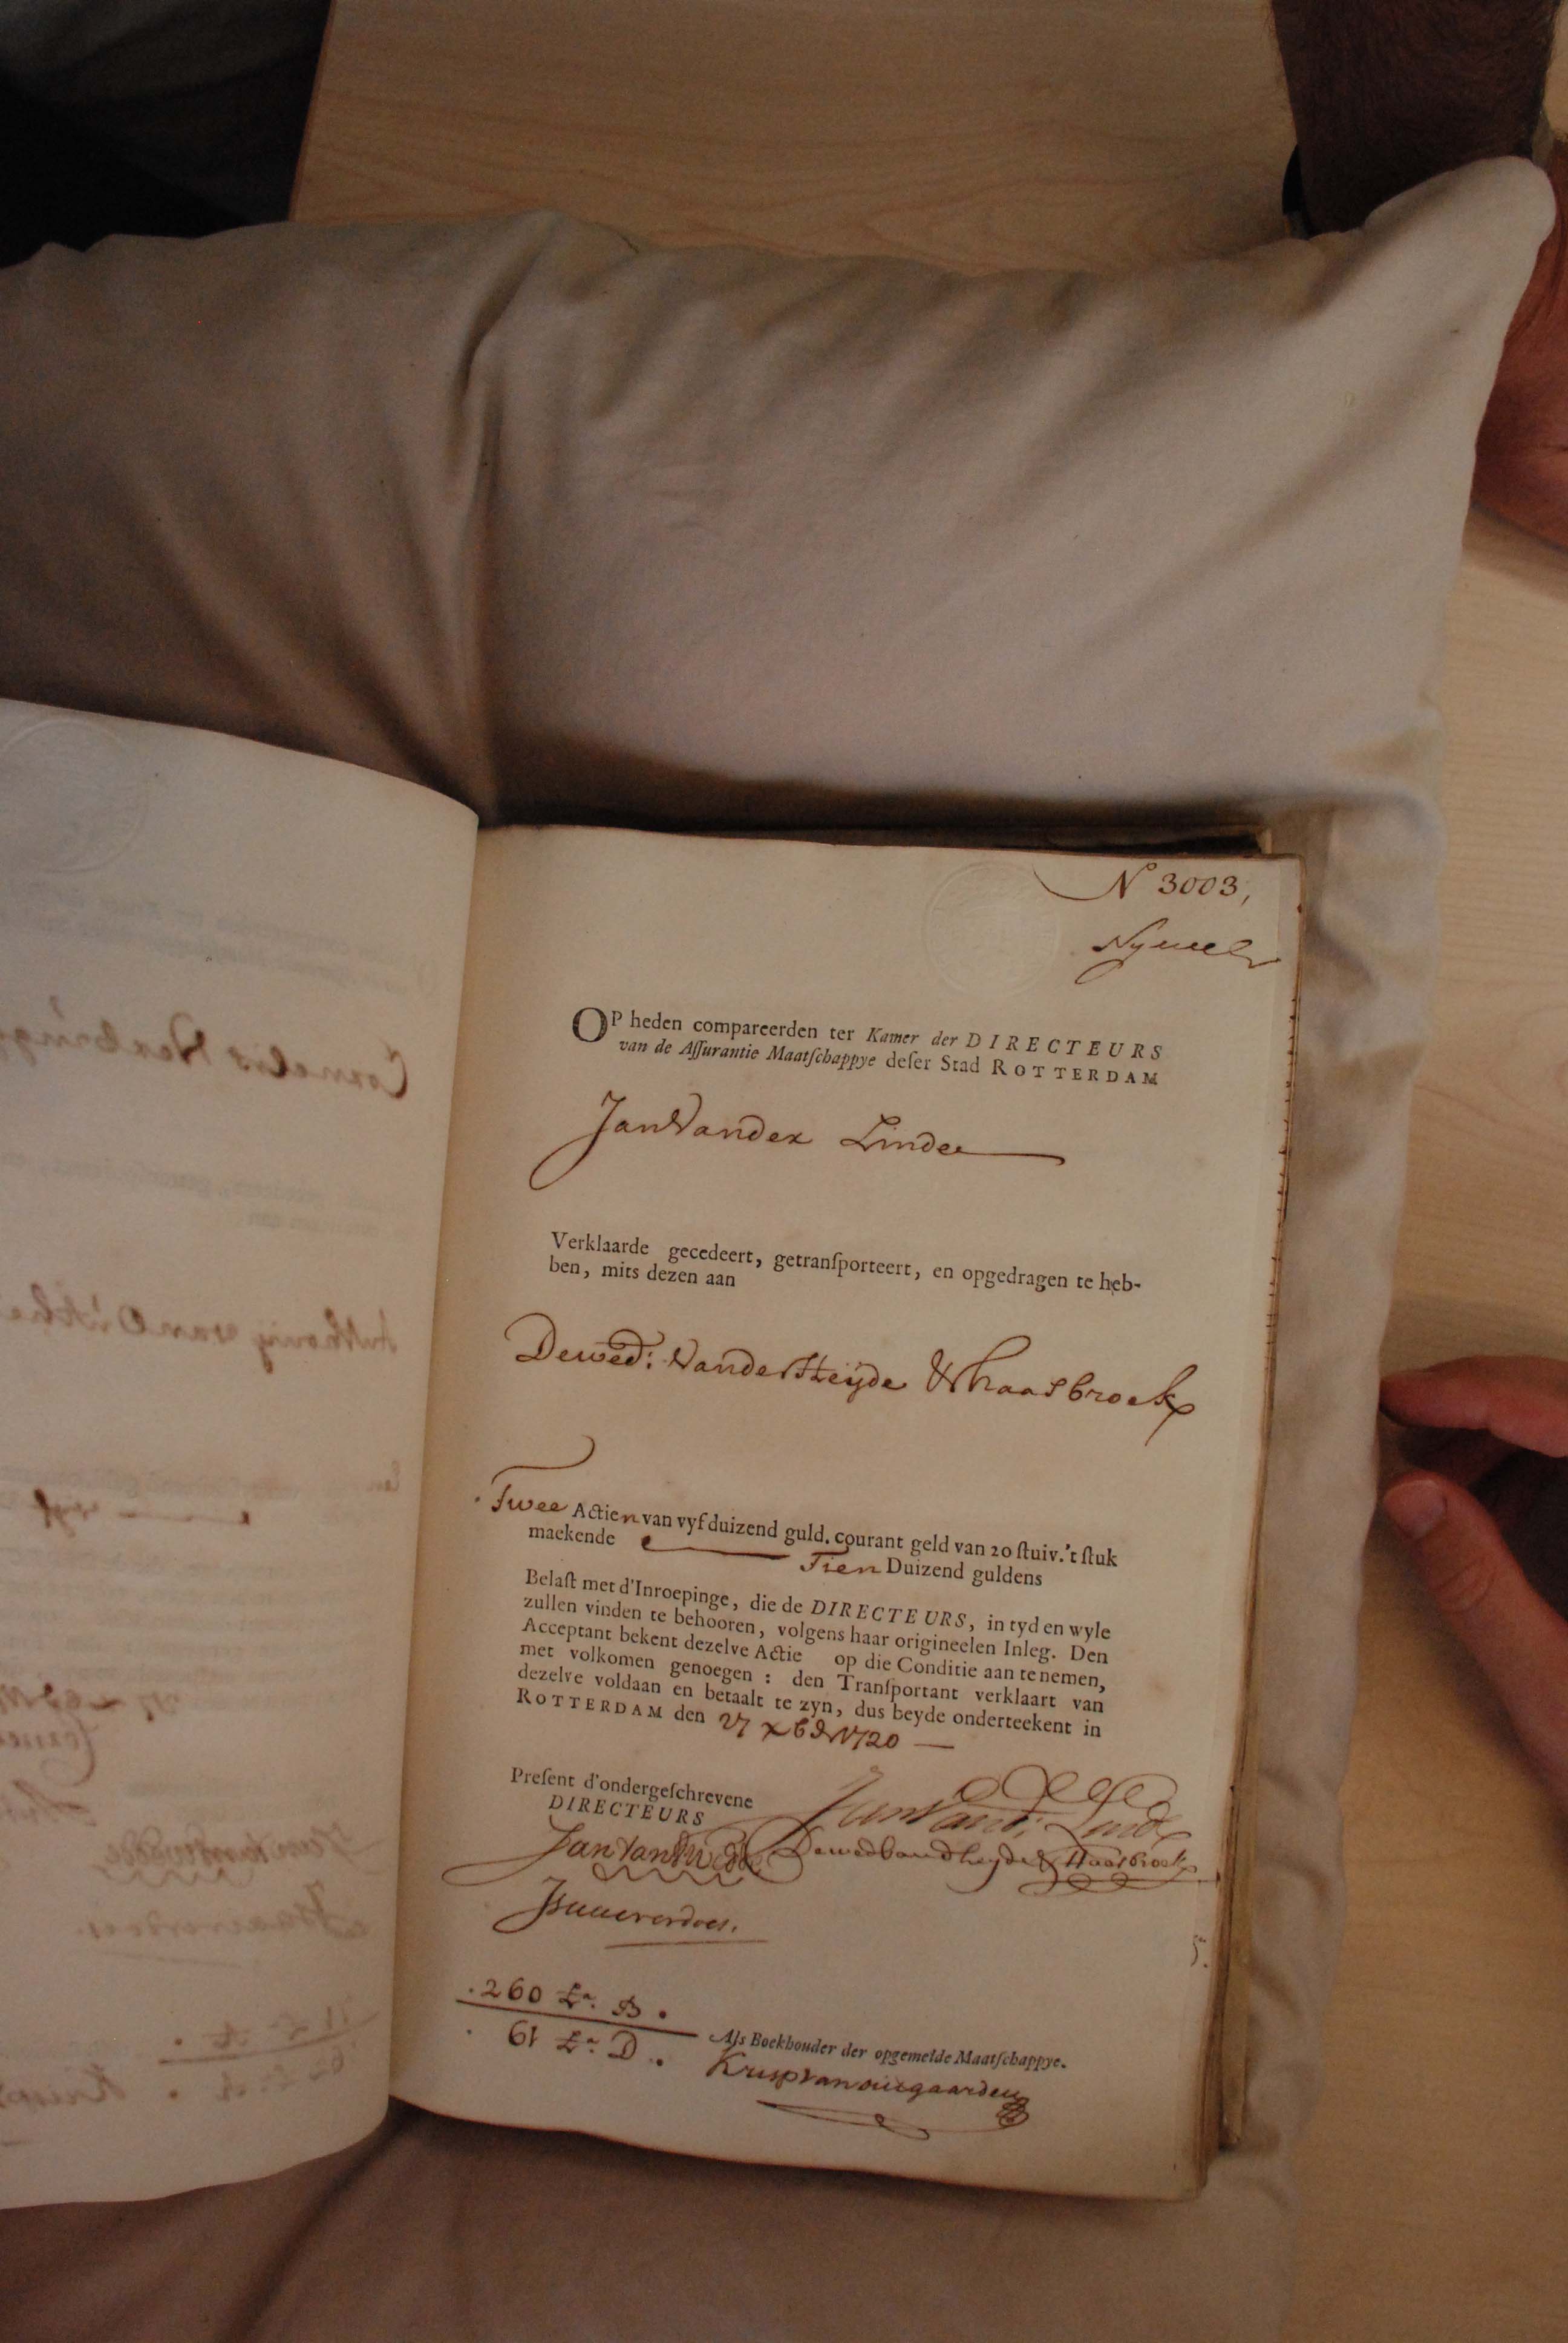 N° 3003,
OP heden compareerden ter Kamer der DIRECTEURS
van de Aſſurantie Maatſchappye deſer Stad ROTTERDAM
Jan Vander Linden
Verklaarde gecedeert, getranſporteert, en opgedragen te heb-
ben, mits dezen aan
De wed: Vander Heijde & Haasbroek
Twee Actien van vyf duizend guld. courant geld van 20 ſtuiv. 't ſtuk
maekende Tien Duizend guldens
Belaſt met d'Inroepinge, die de DIRECTEURS, in tyd en wyle
zullen vinden te behooren, volgens haar origineelen Inleg. Den
Acceptant bekent dezelve Actie op die Conditie aan te nemen,
met volkomen genoegen : den Tranſportant verklaart van
dezelve voldaan en betaalt te zyn, dus beyde onderteekent in
ROTTERDAM den 27 xbr 1720
Preſent d'ondergeſchrevene
DIRECTEURS
Jan Vand: Linde
De wed vand heyde & Haasbroek
260 Lª. B.
61 Lª. D.
Als Boekhouder der opgemelde Maatſchappye.